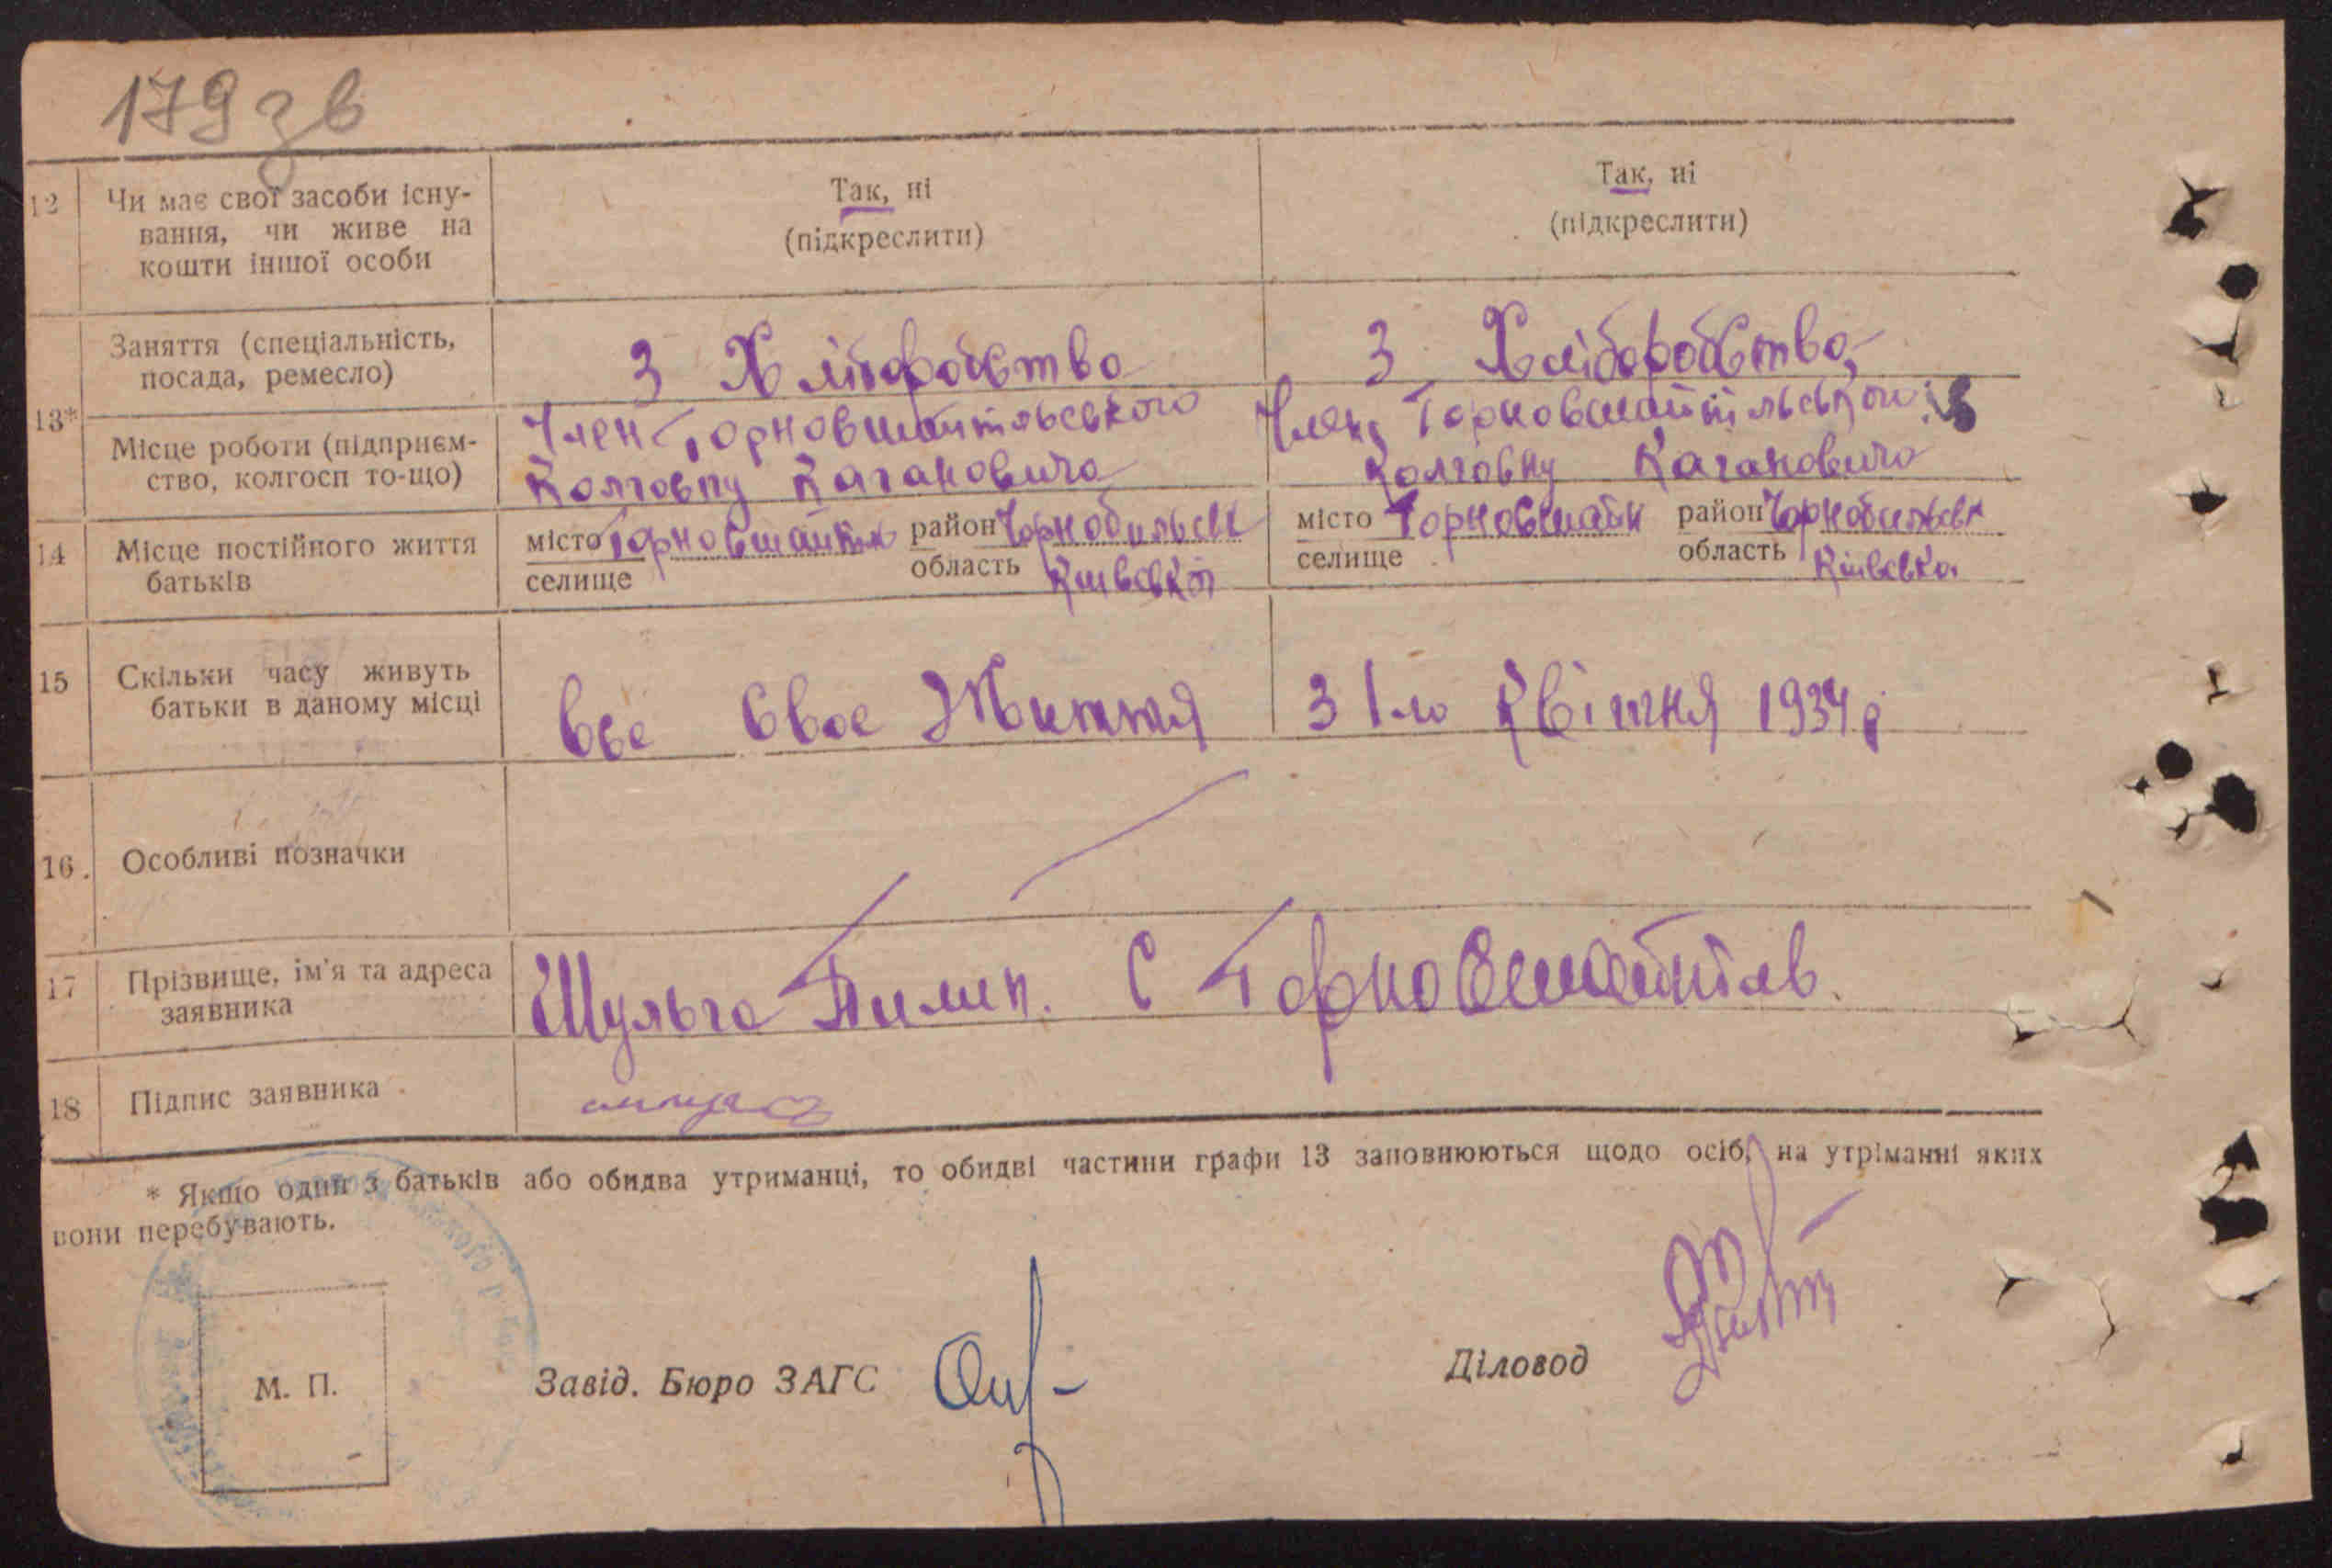 179 зв
12 Чи має свої засоби існу- Так, ні Так, ні
вання, чи живе на (підкреслити) (підкреслити)
кошти іншої особи
Заняття (спеціальність, З Хліборобство З Хліборобство
посада, ремесло)
13* Місце роботи (підприєм- Член Горновшайтільського Член Горновшайтільської
ство, колгосп то-що) Колгоспу Кагановича колгоспу Кагановича
14 Місце постійного життя місто Горновшайтіль район Чорнобильськ місто Горновшайті район Чорнобильськ
батьків селище область Київській селище область Київська
15 Скільки часу живуть все своє Життя З 1го Квітня 1934 р
батьки в даному місці
16. Особливі позначки
17 Прізвище, ім'я та адреса Шульга Пилип. С Горновшайтіль.
заявника
18 Підпис заявника
* Якщо один з батьків або обидва утриманці, то обидві частини графи 13 заповнюються щодо осіб, на утріманні яких
вони перебувають.
М. П. Завід. Бюро ЗАГС Діловод